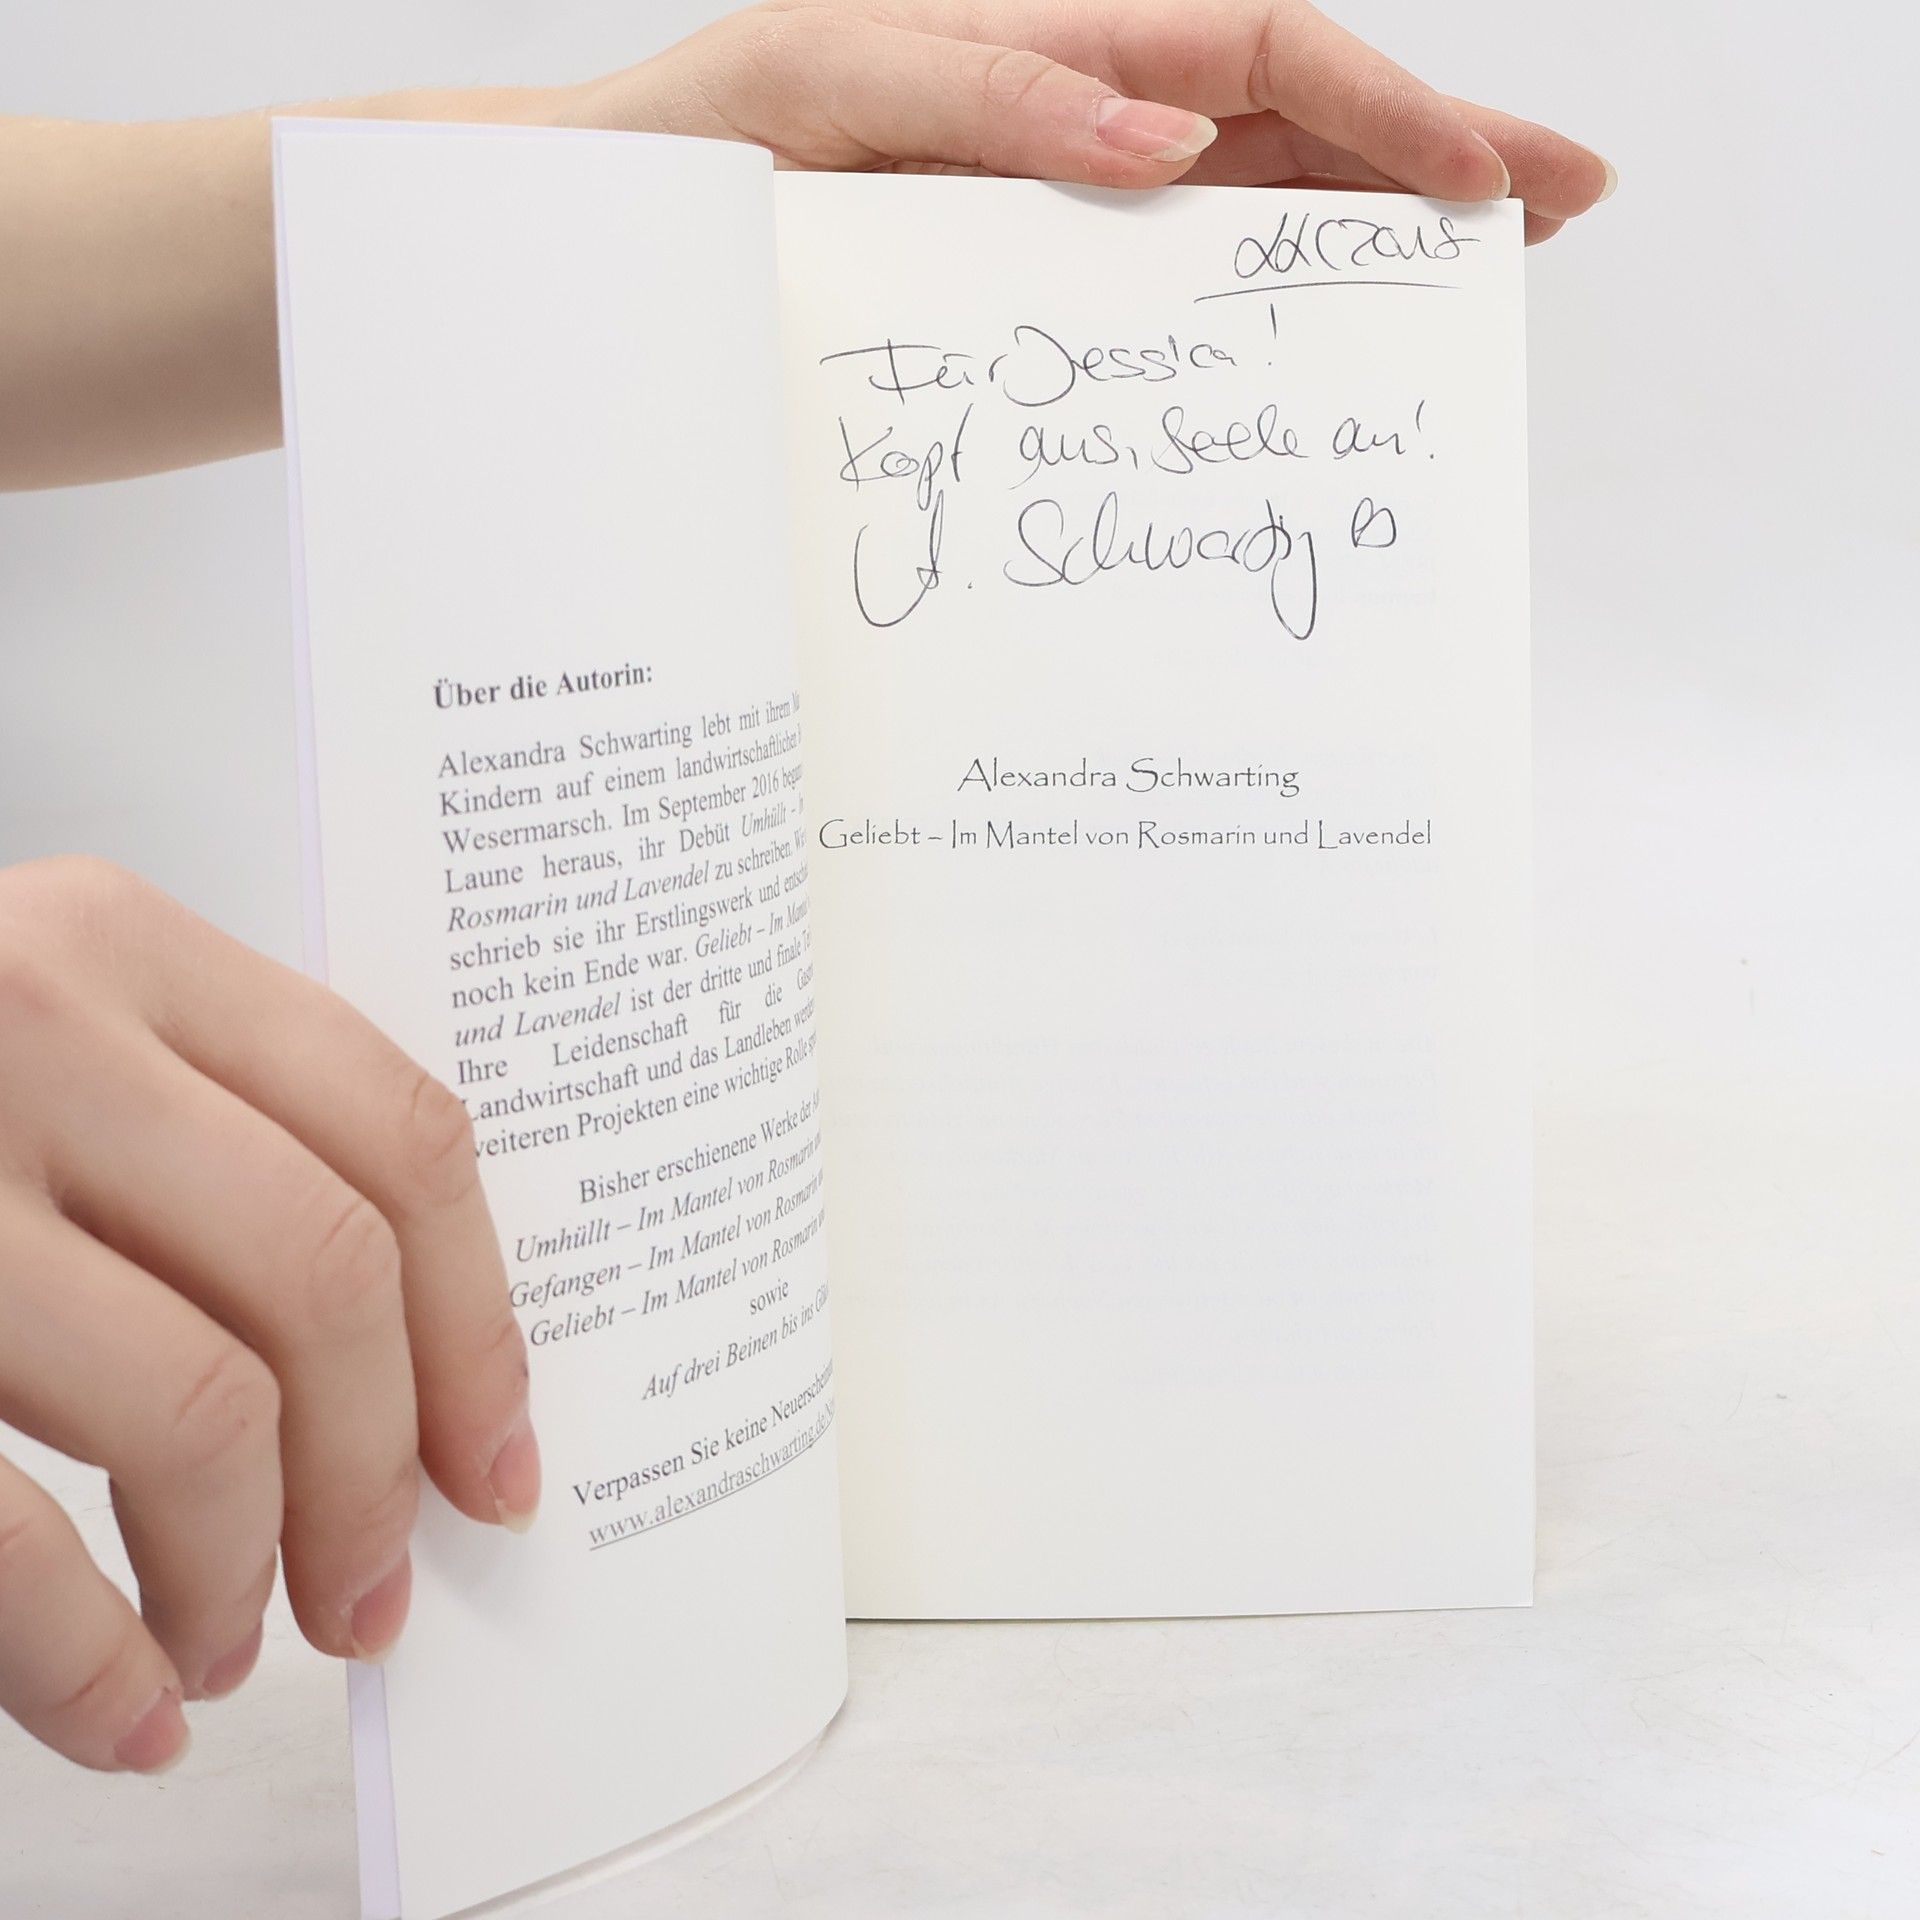 Über die Autorin:
Alexandra Schwarting lebt mit ihrem
Kindern auf einem landwirtschaftlichen
Wesermarsch. Im September 2016 begann
Laune heraus, ihr Debüt Umhüllt –
Rosmarin und Lavendel zu schreiben.
schrieb sie ihr Erstlingswerk und
noch kein Ende war. Geliebt – Im Mantel
und Lavendel ist der dritte und finale
Ihre Leidenschaft für die
Landwirtschaft und das Landleben werden
weiteren Projekten eine wichtige Rolle
Bisher erschienene Werke der
Umhüllt – Im Mantel von Rosmarin
Gefangen – Im Mantel von Rosmarin
Geliebt – Im Mantel von Rosmarin
sowie
Auf drei Beinen bis ins
Verpassen Sie keine
www.alexandraschwarting.de
Für Jessica!
Kopf aus, Seele an!
A. Schwarting
Alexandra Schwarting
Geliebt – Im Mantel von Rosmarin und Lavendel